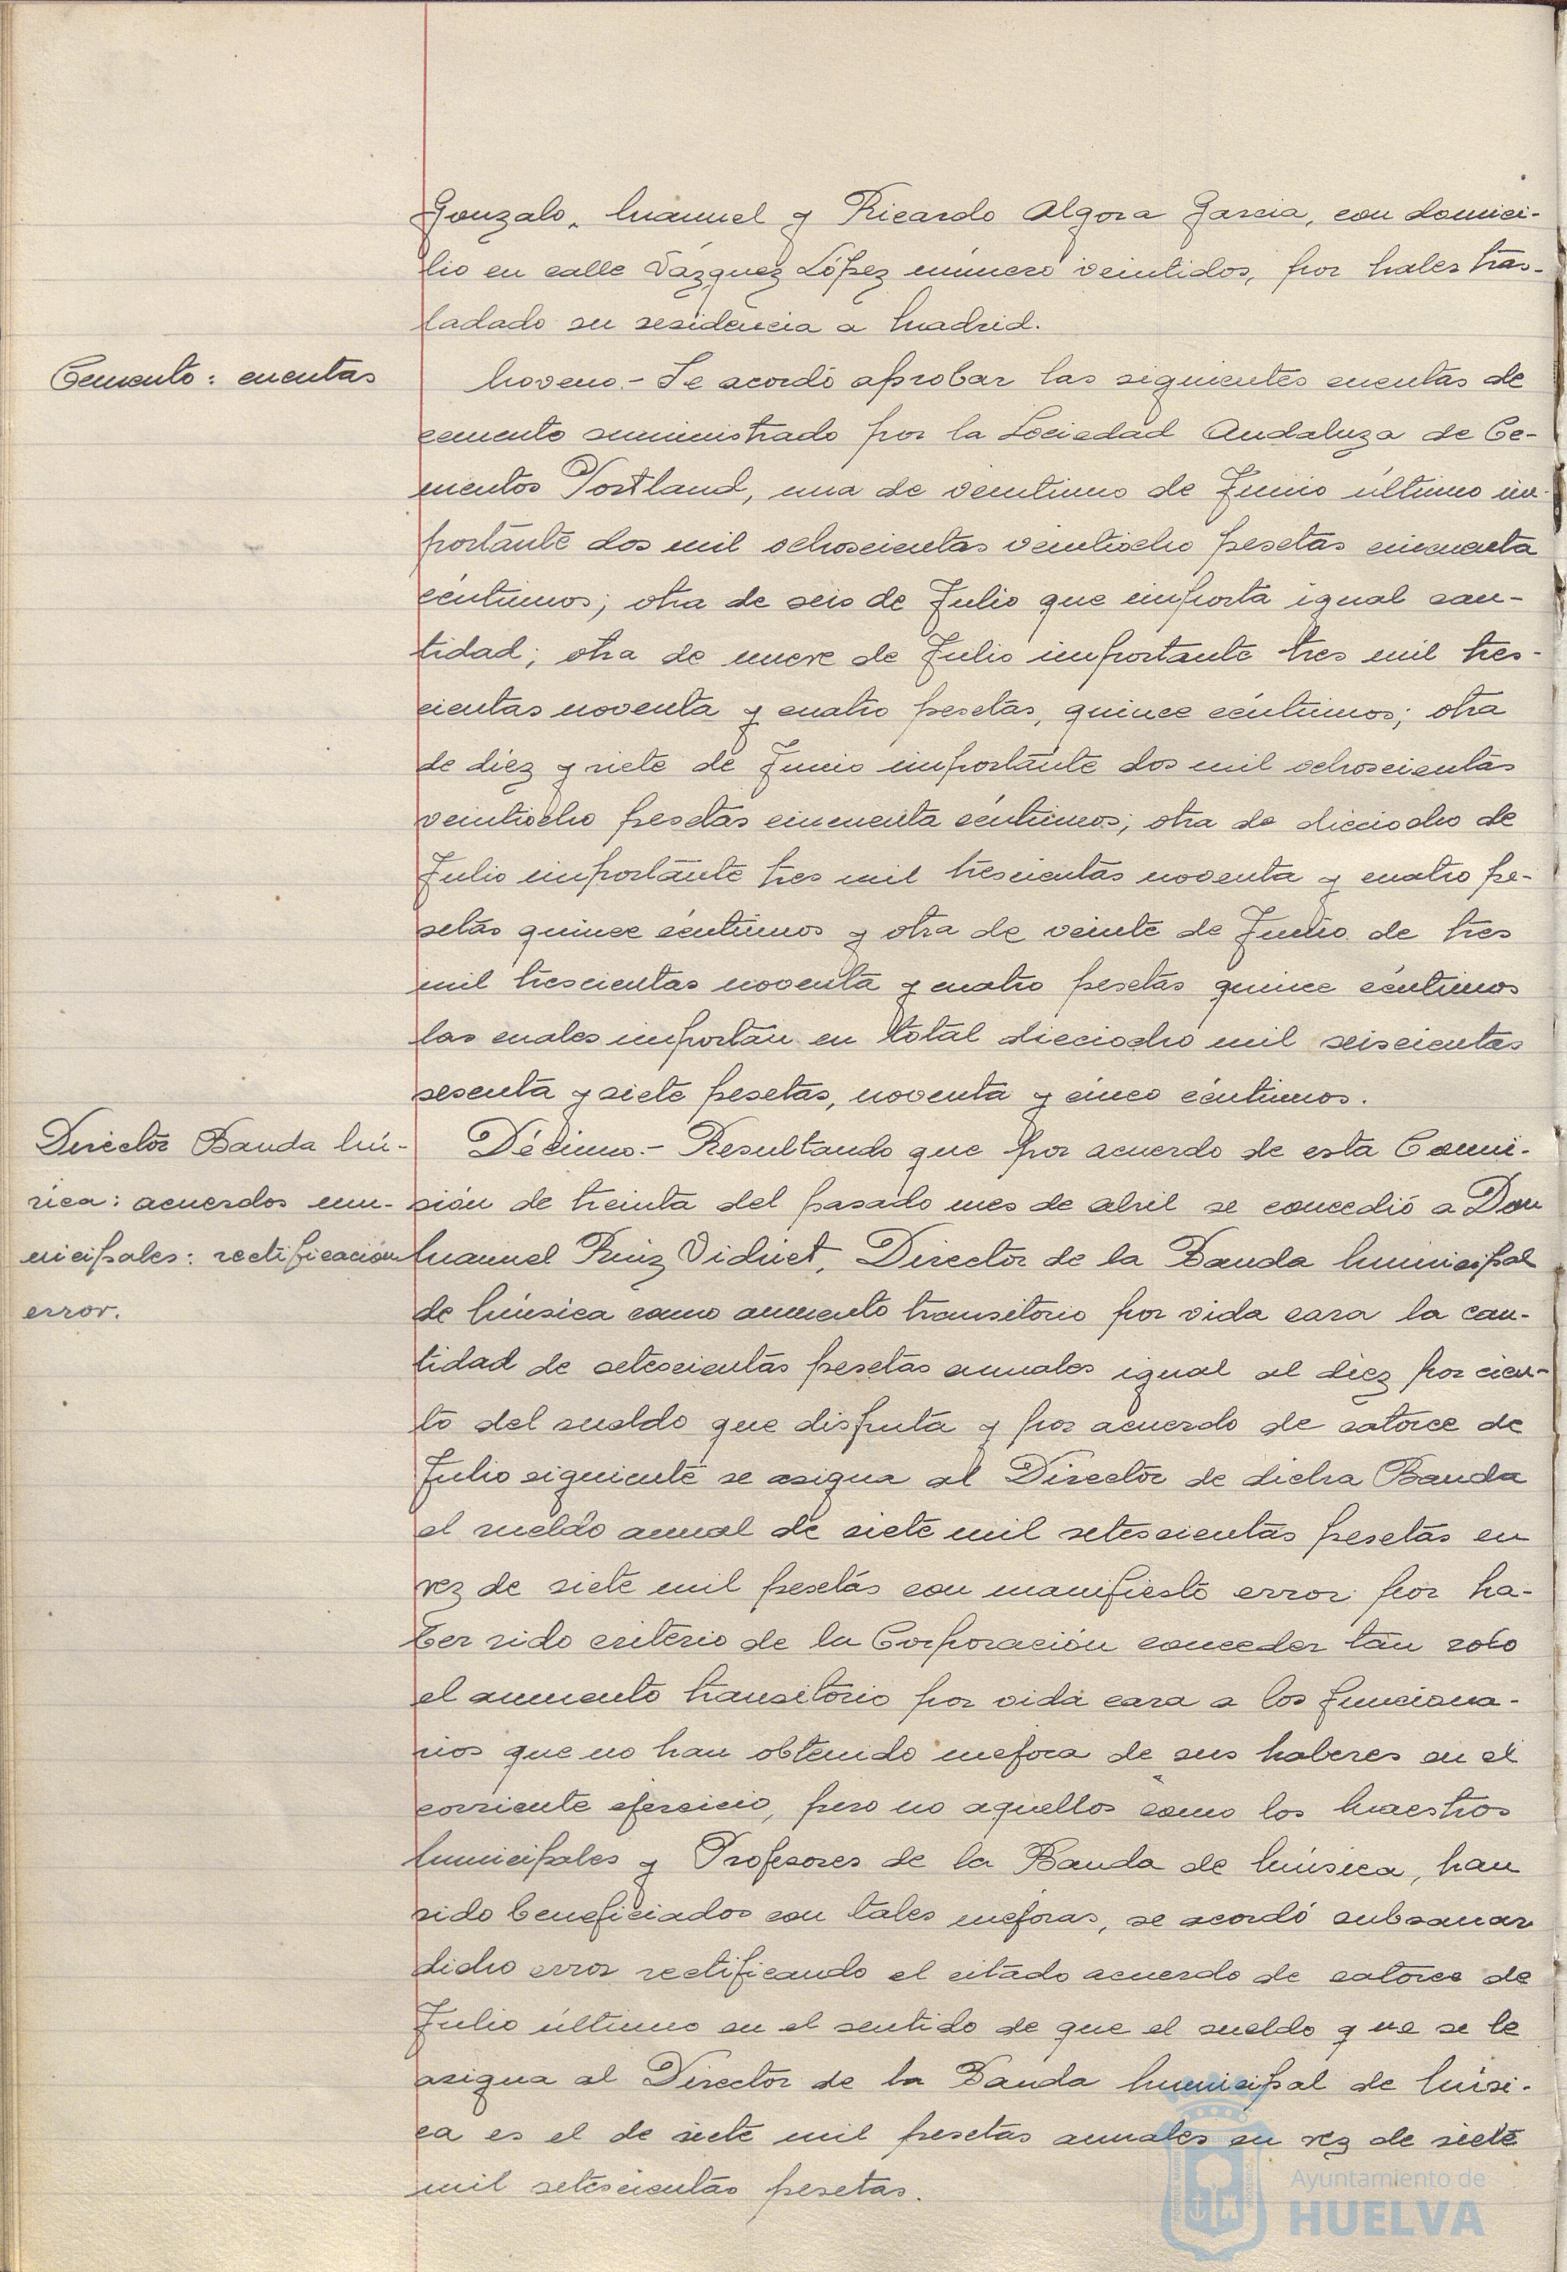 Gonzalo, Manuel y Ricardo Algora Garcia, con domici-
lio en calle Vázquez López número veintidos, por hales tras-
ladado su residencia a Madrid.
Cemento: cuentas
Noveno.- Se acordó aprobar las siguientes cuentas de
cemento suministrado por la Sociedad Andaluza de Ce-
mentos Portland, una de veintiuno de Junio último im-
portante dos mil ochoscientas veintiocho pesetas cincuenta
céntimos; otra de seis de Julio que importa igual can-
tidad; otra de nueve de Julio importante tres mil tres-
cientas noventa y cuatro pesetas, quince céntimos; otra
de diez y siete de Junio importante dos mil ochoscientas
veintiocho pesetas cincuenta céntimos; otra de dieciocho de
Julio importante tres mil trescientas noventa y cuatro pe-
setas quince céntimos y otra de veinte de de tres
mil trescientas noventa y cuatro pesetas quince céntimos
las cuales importan en total dieciocho mil seiscientas
sesenta y siete pesetas, noventa y cinco céntimos.
Director Banda Mú-
sica: acuerdos mu-
nicipales: rectificación
error.
Décimo.- Resultando que por acuerdo de esta Comi-
sión de treinta del pasado mes de abril se concedió a Don
Manuel Ruiz Vidriet, Director de la Banda Municipal
de Música como aumento transitorio por vida cara la can-
tidad de setescientas pesetas anuales igual al diez por cien-
to del sueldo que disfruta y por acuerdo de catorce de
Julio siguiente se asigna al Director de dicha Banda
el sueldo anual de siete mil setescientas pesetas en
vez de siete mil pesetas con manifiesto error por ha-
ber sido criterio de la Corporación conceder tan solo
el aumento transitorio por vida cara a los funciona-
rios que no han obtenido mejora de sus haberes en el
corriente ejercicio, pero no aquellos como los Maestros
Municipales y Profesores de la Banda de Música, han
sido beneficiados con tales mejoras, se acordó subsanar
dicho error rectificando el citado acuerdo de catorce de
Julio último en el sentido de que el sueldo que se le
asigna al Director de la Banda Municipal de Músi-
ca es el de siete mil pesetas anuales en vez de siete
mil setescientas pesetas.
Ayuntamiento de
HUELVA